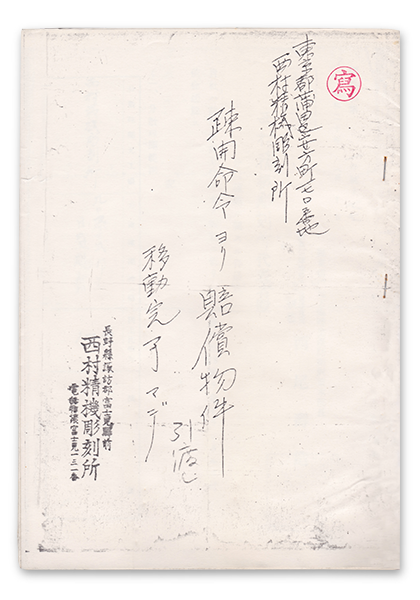 寫
東京都蒲田区女方町七〇番地
西村精機彫刻所
疎開命令ヨリ賠償物件
引渡し
移動完了マデ
長野縣諏訪郡富士見驛前
西村精機彫刻所
電話信濃富士見一三一番